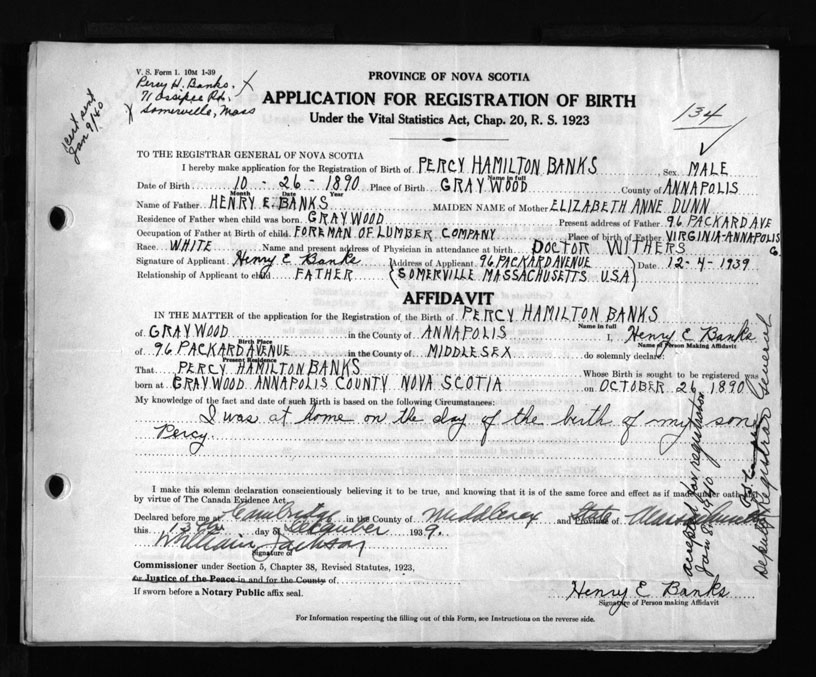 V. S. Form 1. 10M 1-39
Percy H. Banks. X
71 Ossipee Rd.
X Somerville, Mass
cert sent
Jan 9/40
PROVINCE OF NOVA SCOTIA
APPLICATION FOR REGISTRATION OF BIRTH
Under the Vital Statistics Act, Chap. 20, R. S. 1923
134
TO THE REGISTRAR GENERAL OF NOVA SCOTIA
I hereby make application for the Registration of Birth of PERCY HAMILTON BANKS Sex MALE
Name in full
Date of Birth 10 - 26 - 1890 Place of Birth GRAYWOOD County of ANNAPOLIS
Month Date Year
Name of Father HENRY E. BANKS MAIDEN NAME of Mother ELIZABETH ANNE DUNN
Residence of Father when child was born GRAYWOOD Present address of Father 96 PACKARD AVE
Occupation of Father at Birth of child FOREMAN OF LUMBER COMPANY Place of birth of Father VIRGINIA-ANNAPOLIS Co.
Race WHITE Name and present address of Physician in attendance at birth DOCTOR WITHERS
Signature of Applicant Henry E Banks Address of Applicant 96 PACKARD AVENUE Date 12-4-1939
Relationship of Applicant to child FATHER (SOMERVILLE MASSACHUSETTS USA)
AFFIDAVIT
IN THE MATTER of the application for the Registration of the Birth of PERCY HAMILTON BANKS
Name in full
of GRAYWOOD in the County of ANNAPOLIS I, Henry E Banks
Birth Place Name of Person Making Affidavit
of 96 PACKARD AVENUE in the County of MIDDLESEX do solemnly declare:
Present Residence
That PERCY HAMILTON BANKS Whose Birth is sought to be registered was
born at GRAYWOOD ANNAPOLIS COUNTY NOVA SCOTIA on OCTOBER 26 1890
My knowledge of the fact and date of such Birth is based on the following Circumstances:
I was at home on the day of the birth of my son
Percy.
I make this solemn declaration conscientiously believing it to be true, and knowing that it is of the same force and effect as if made under oath and
by virtue of The Canada Evidence Act.
Declared before me at Cambridge in the County of Middlesex and State Province of Massachusetts
this 13th day of December 1939.
William Jackson
Signature of
Commissioner under Section 5, Chapter 38, Revised Statutes, 1923,
or Justice of the Peace in and for the County of
If sworn before a Notary Public affix seal.
Henry E Banks
Signature of Person making Affidavit
For Information respecting the filling out of this Form, see Instructions on the reverse side.
accepted for registration
Jan 8 1940
Deputy Registrar General